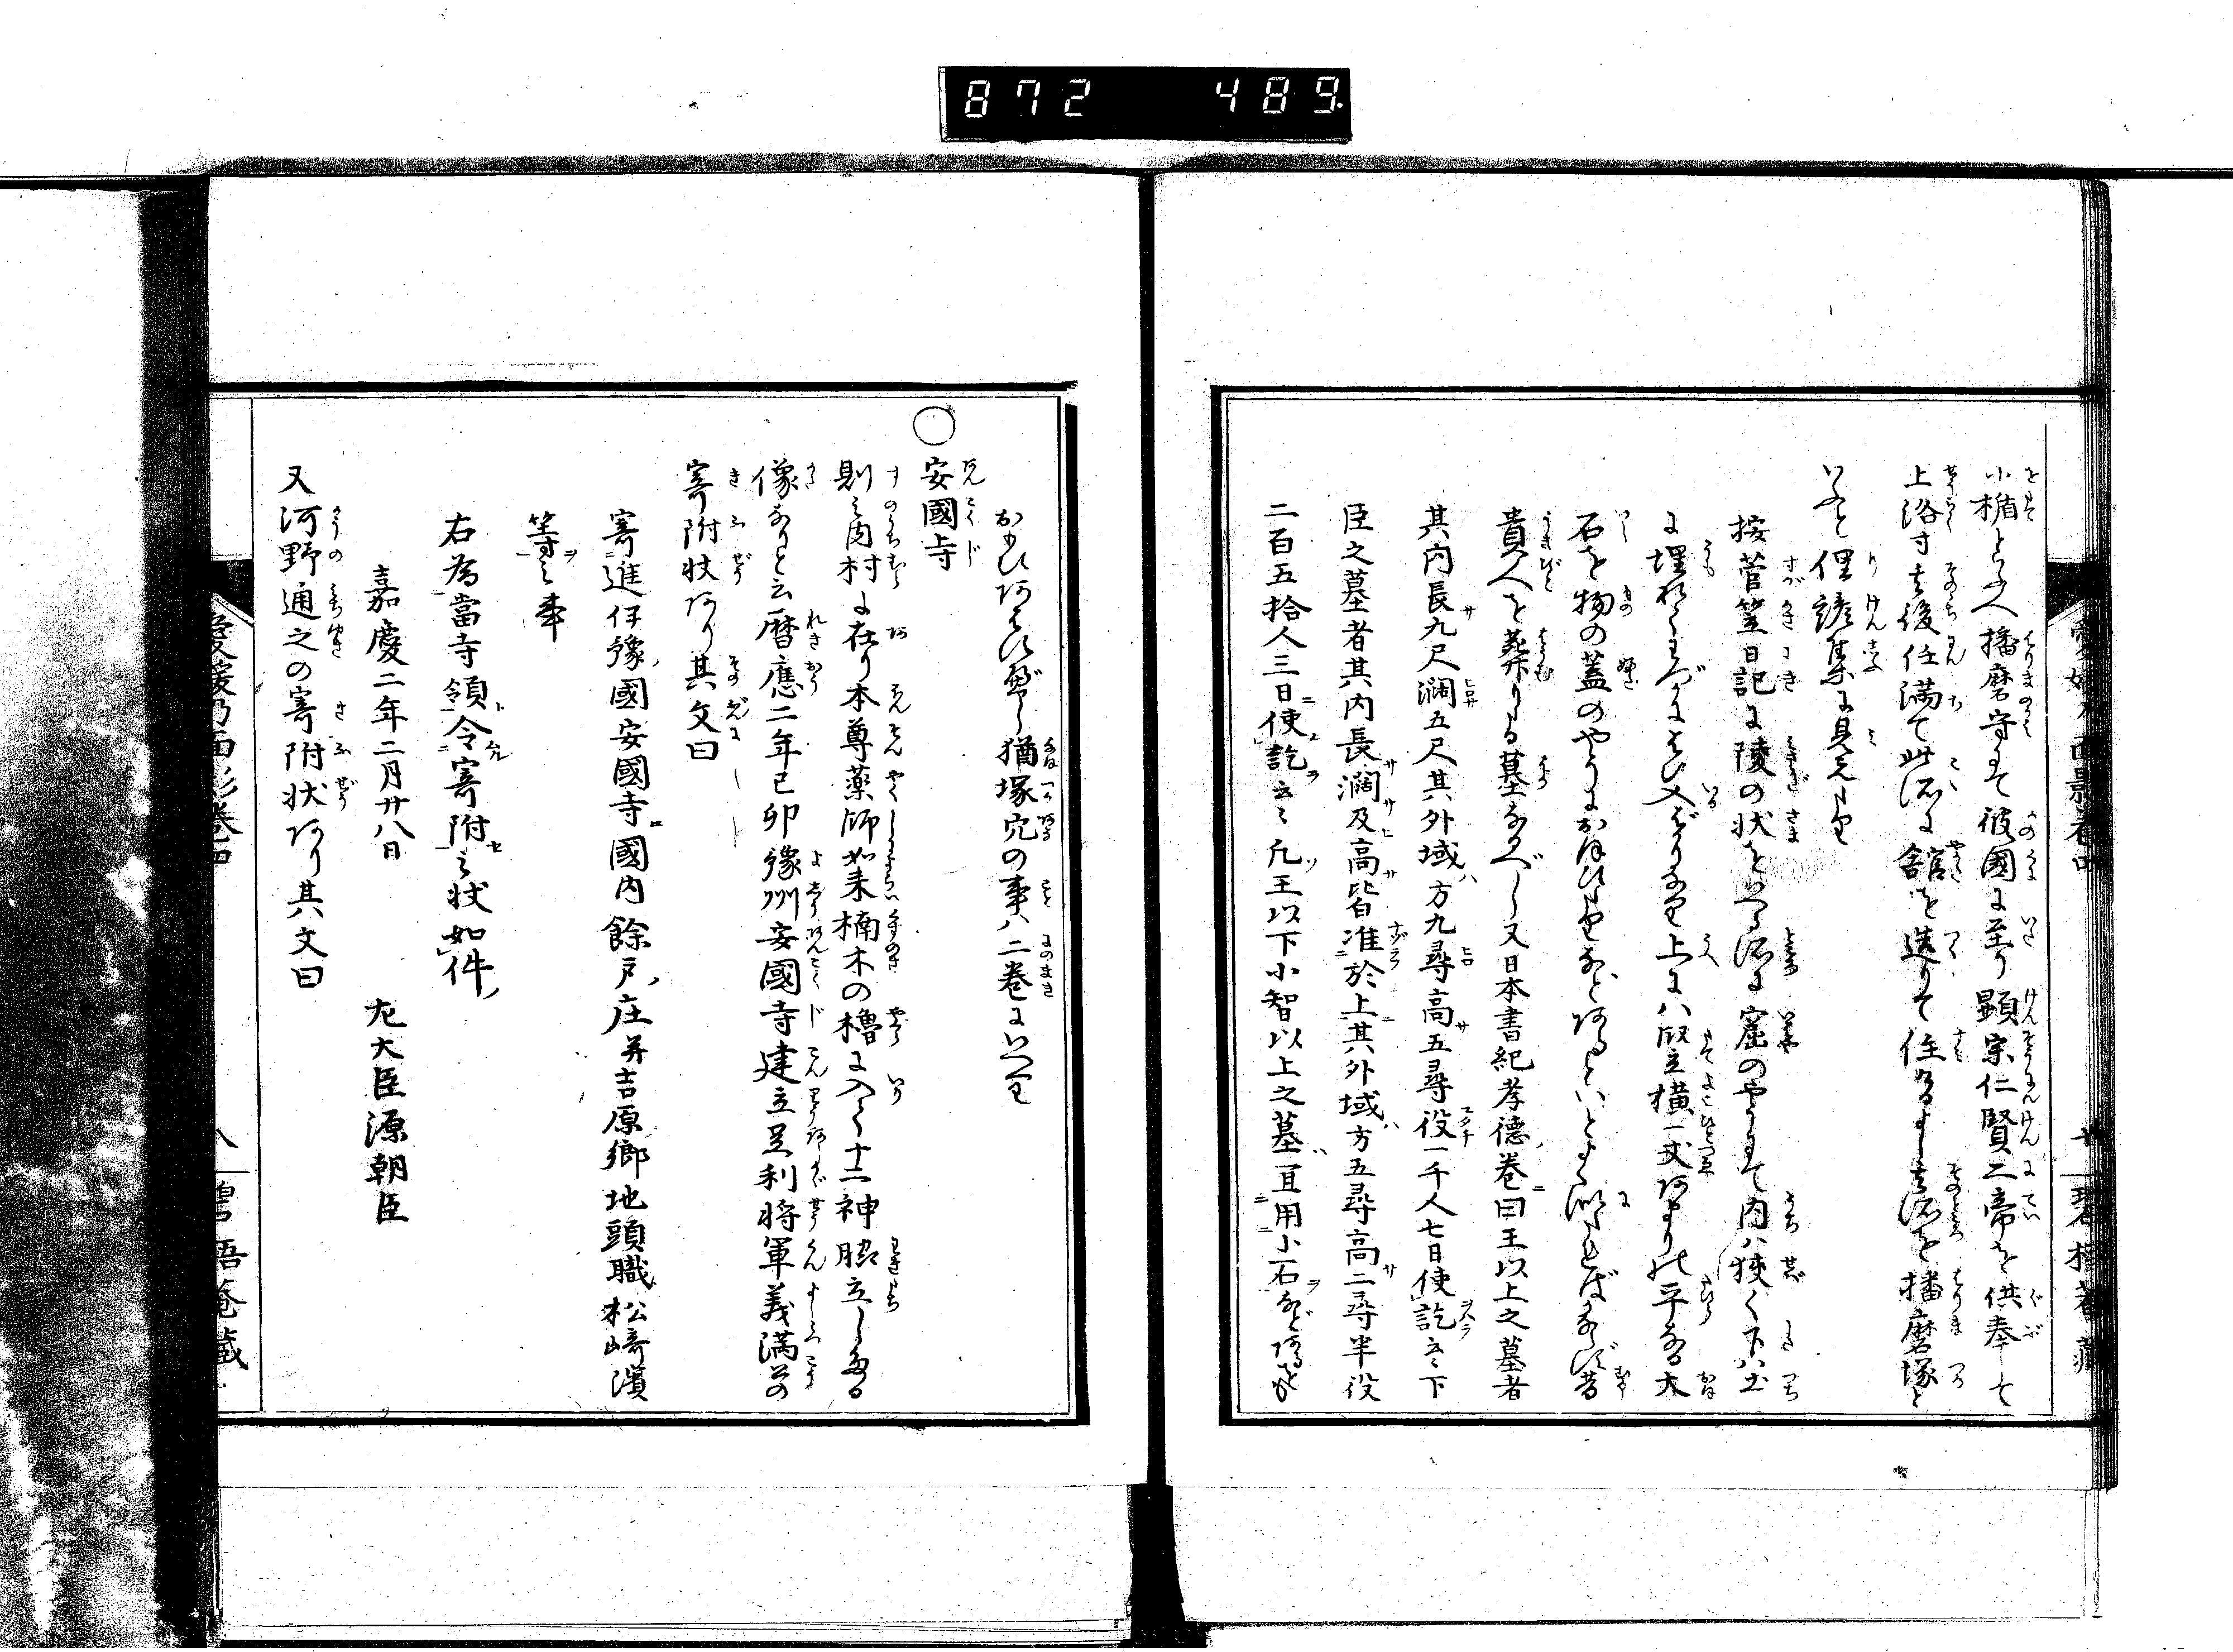 872 489
小楯といふ人播磨守にて彼國に至り顕宗仁賢二帝を供奉して
上洛す其後任満て此所に舘を造りて住るよし其所を播磨塚と
いふと俚諺集に見えたり
按菅笠日記に陵の状をいへる所に窟のやうにて内ハ狭く下ハ土
に埋れてわづかにはひ入ばかりなり上にハ竪横一丈あまりの平なる大
石を物の蓋のやうにおほひたりなどあるといとよく似たればならず昔
貴人を葬りたる墓なるべし又日本書紀孝徳巻曰王以上之墓者
其内長九尺濶五尺其外域方九尋高五尋役一千人七日使訖云々下
臣之墓者其内長濶及高皆准於上其外域方五尋高二尋半役
二百五拾人三日使訖云々凡王以下小智以上之墓宜用小石などあるをも
おもひあはすべし猶塚穴の事ハ二巻にいへり
○安國寺
則之内村に在り本尊薬師如来楠木の櫓に入て十二神脇立したる
像なりと云暦應二年己卯豫州安國寺建立足利将軍義満公の
寄附状あり其文曰
寄進伊豫國安國寺國内餘戸庄并吉原郷地頭職松﨑濱
等之事
右為當寺領令寄附之状如件
嘉慶二年二月廿八日 左大臣源朝臣
又河野通之の寄附状あり其文曰
愛媛乃面影巻四